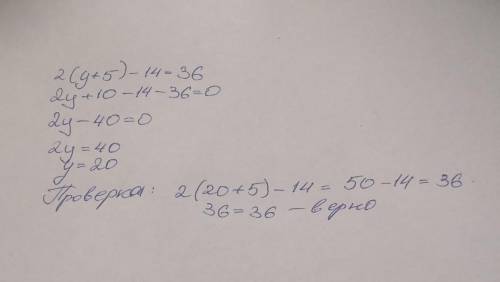 2(y+5)-14=36
2y+10-14-36=0
2y-40=0
2y=40
y=20
Проверка: 2(20+5)-14 = 50-14 = 36.
36=36 - верно